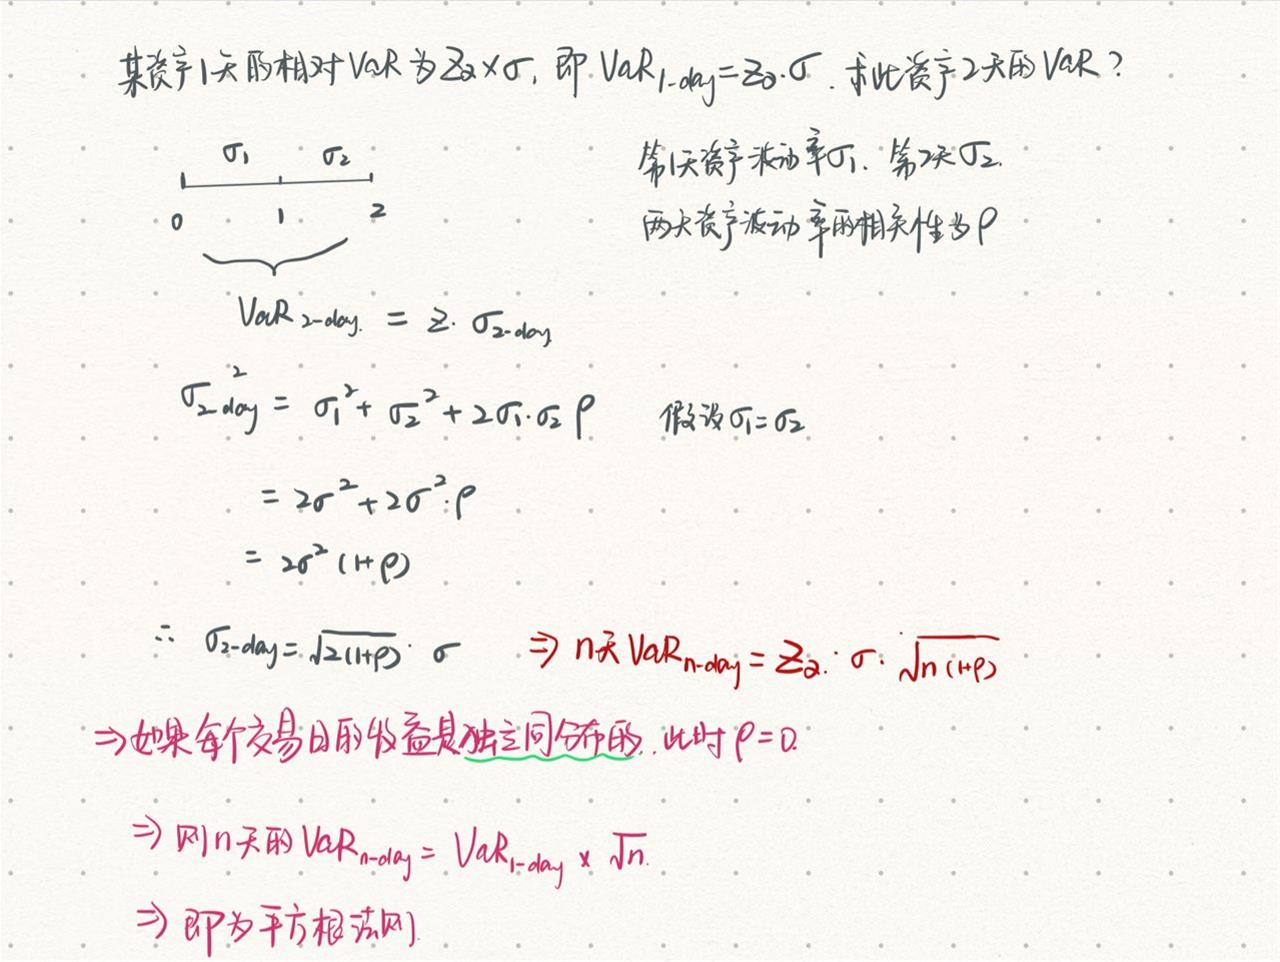 某资产1天的相对VaR为Zα×σ, 即 VaR1-day=Zα·σ. 求此资产2天的VaR?
σ1 σ2
0 1 2
第1天资产波动率σ1. 第2天σ2.
两天资产波动率的相关性为ρ
VaR2-day. = Z· σ2-day
σ2-day² = σ1²+ σ2²+2σ1·σ2 ρ 假设σ1=σ2
= 2σ²+2σ²·ρ
= 2σ²(1+ρ)
∴ σ2-day=√2(1+ρ)· σ ⇒ n天VaRn-day=Zα·σ·√n(1+ρ)
⇒如果每个交易日的收益是独立同分布的, 此时ρ=0.
⇒ 则n天的VaRn-day= VaR1-day × √n.
⇒ 即为平方根法则.